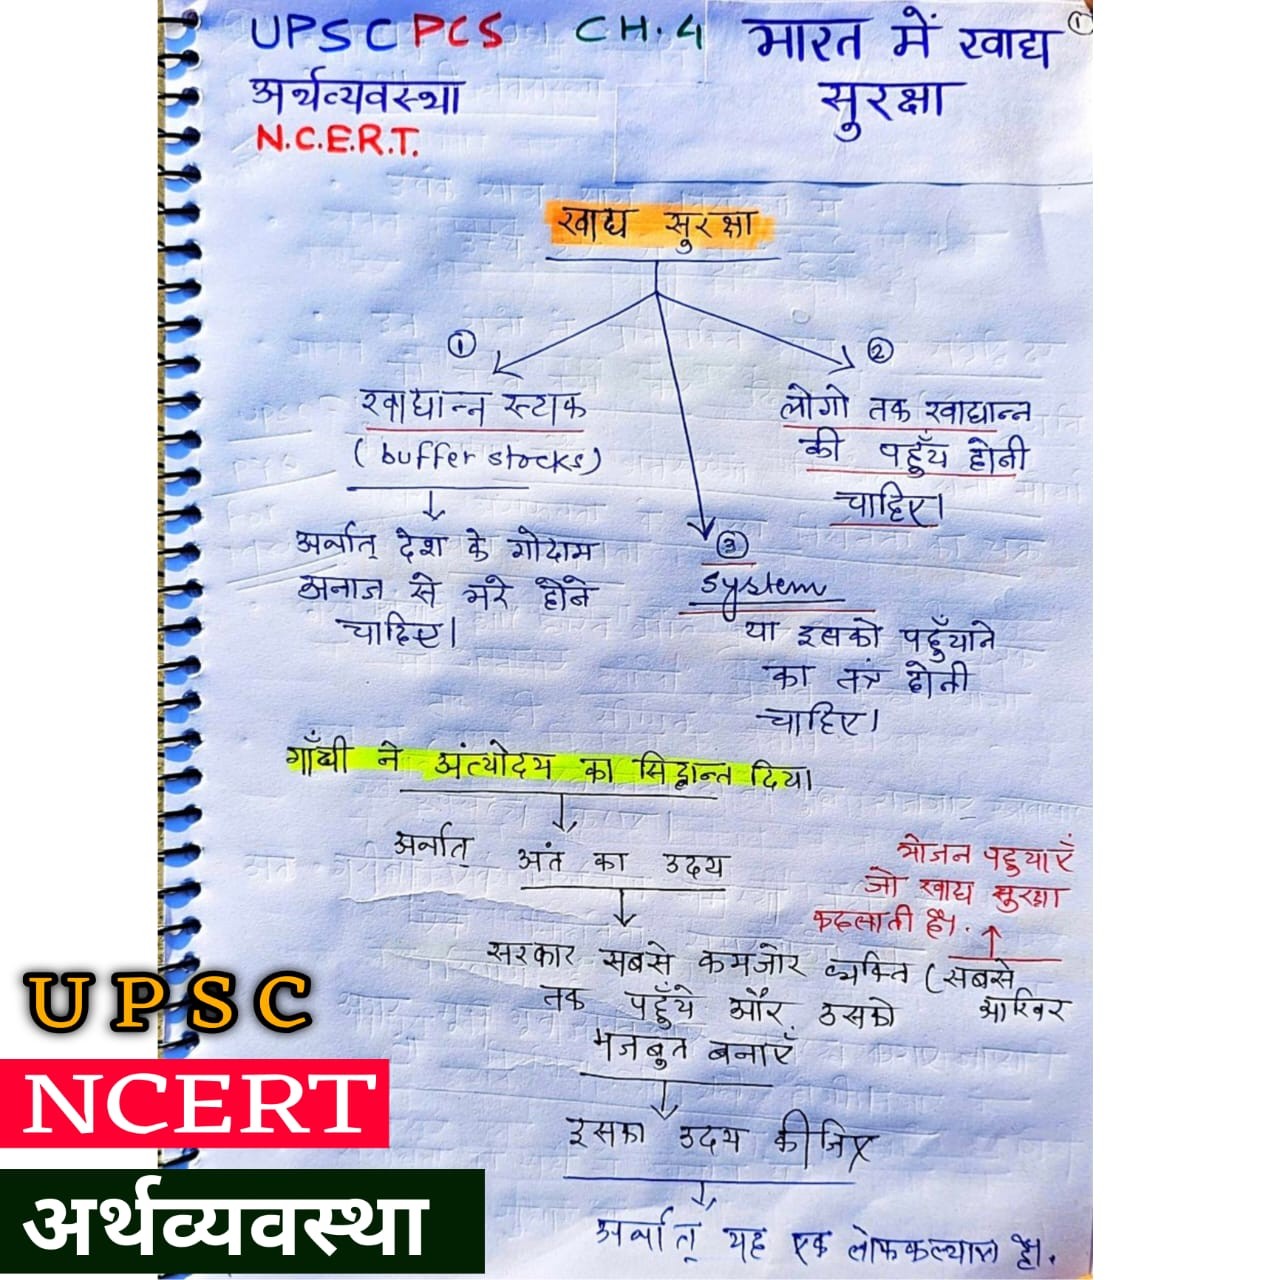 UPSC PCS CH.4 भारत में खाद्य ①
सुरक्षा
अर्थव्यवस्था
N.C.E.R.T.
खाद्य सुरक्षा
①
खाद्यान्न स्टाक
(buffer stocks)
अर्थात् देश के गोदाम
अनाज से भरे होने
चाहिए।
②
लोगो तक खाद्यान्न
की पहुँच होनी
चाहिए।
③
system
या इसको पहुँचाने
का तंत्र होनी
चाहिए।
गाँधी ने अंत्योदय का सिद्धान्त दिया।
अर्थात् अंत का उदय
भोजन पहुचाएँ
जो खाद्य सुरक्षा
कहलाती है।
सरकार सबसे कमजोर व्यक्ति (सबसे
तक पहुँचे और उसको आखिर
मजबुत बनाएँ
इसका उदय कीजिए
अर्थात् यह एक लोककल्याण है।
UPSC
NCERT
अर्थव्यवस्था